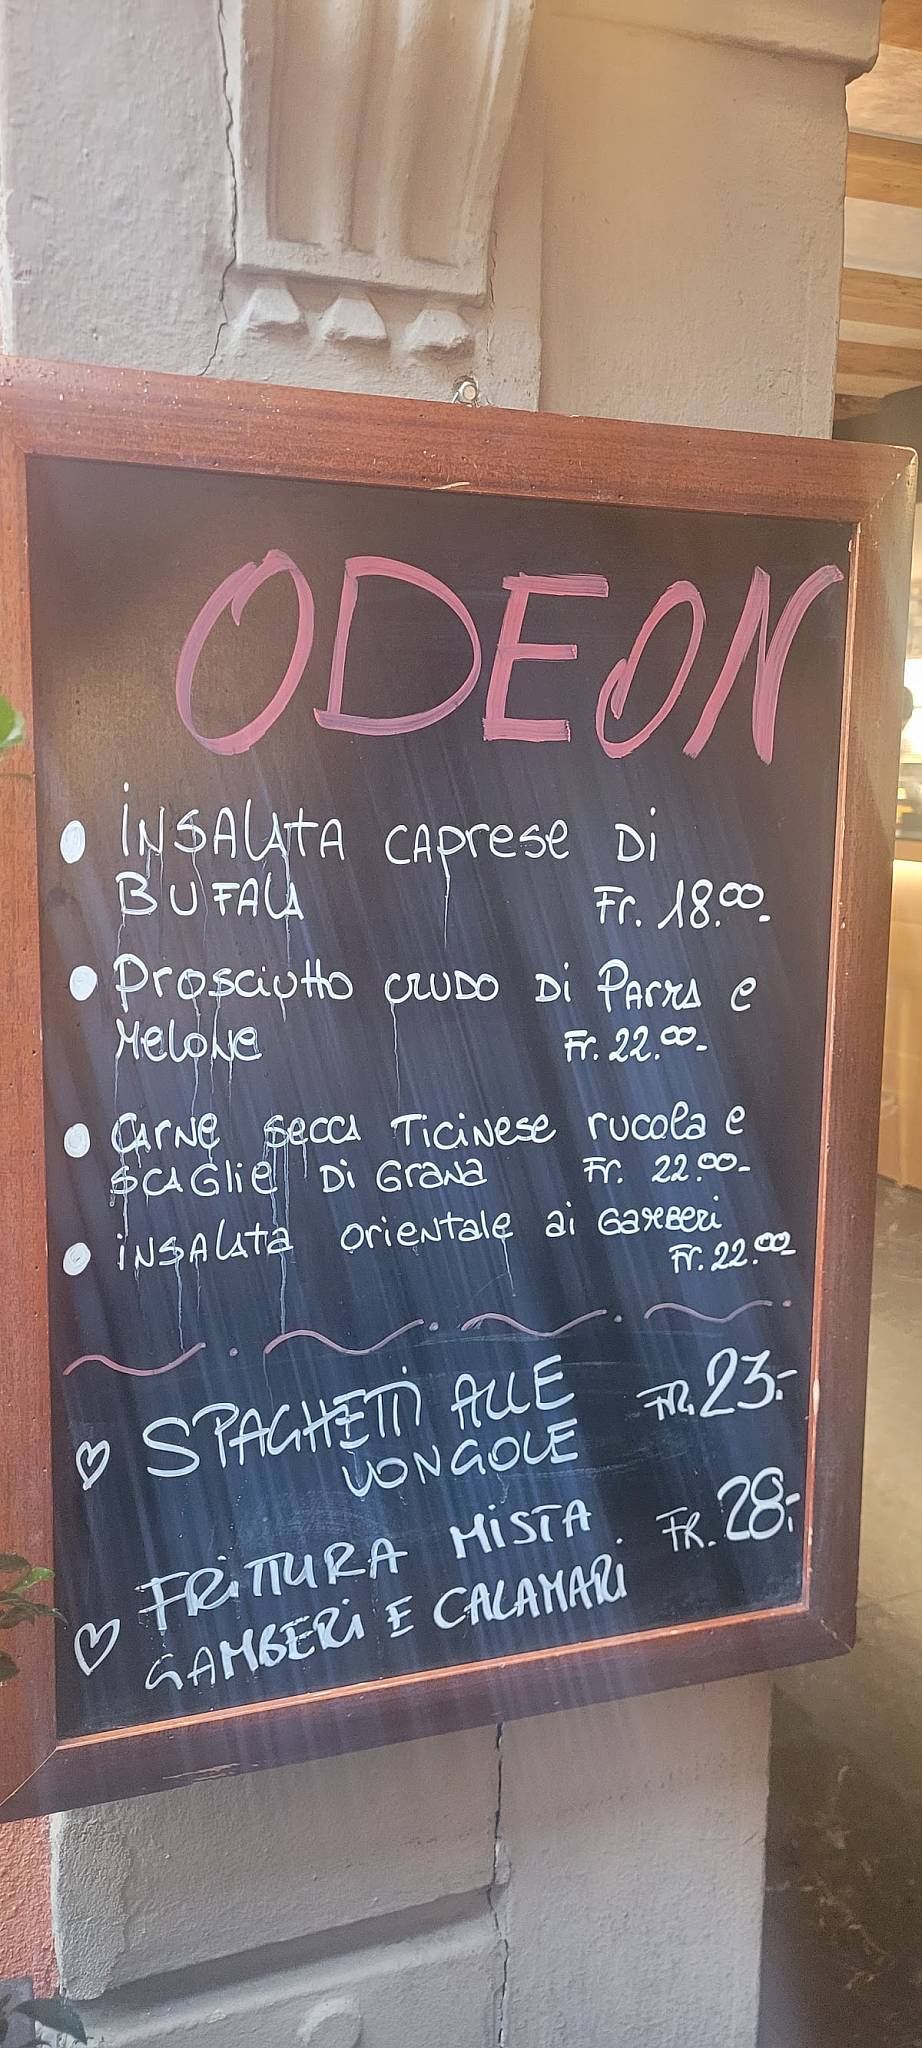 ODEON
• INSALATA CAPRESE DI
BUFALA Fr. 18.00.-
• PROSCIUTTO CRUDO DI PARMA e
MELONE Fr. 22.00-
• CARNE SECCA TICINESE rucola e
SCAGLIE DI GRANA Fr. 22.00-
• INSALATA ORIENTALE ai GAMBERI
Fr. 22.00-
♡ SPAGHETTI ALLE FR. 23.-
VONGOLE
♡ FRITTURA MISTA FR. 28.-
GAMBERI E CALAMARI